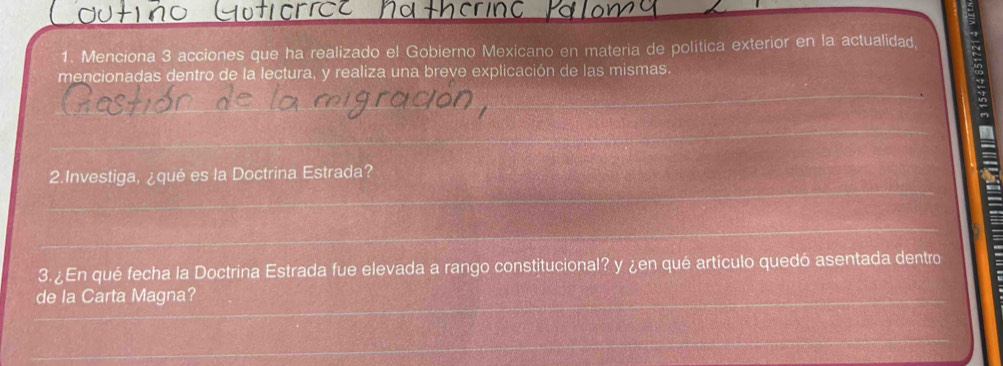 Coutiño Gutiérrez Katherine Paloma
1. Menciona 3 acciones que ha realizado el Gobierno Mexicano en materia de política exterior en la actualidad,
mencionadas dentro de la lectura, y realiza una breve explicación de las mismas.
Gestión de la migración,
2.Investiga, ¿qué es la Doctrina Estrada?
3.¿En qué fecha la Doctrina Estrada fue elevada a rango constitucional? y ¿en qué artículo quedó asentada dentro
de la Carta Magna?
3 15414 85172 1 4